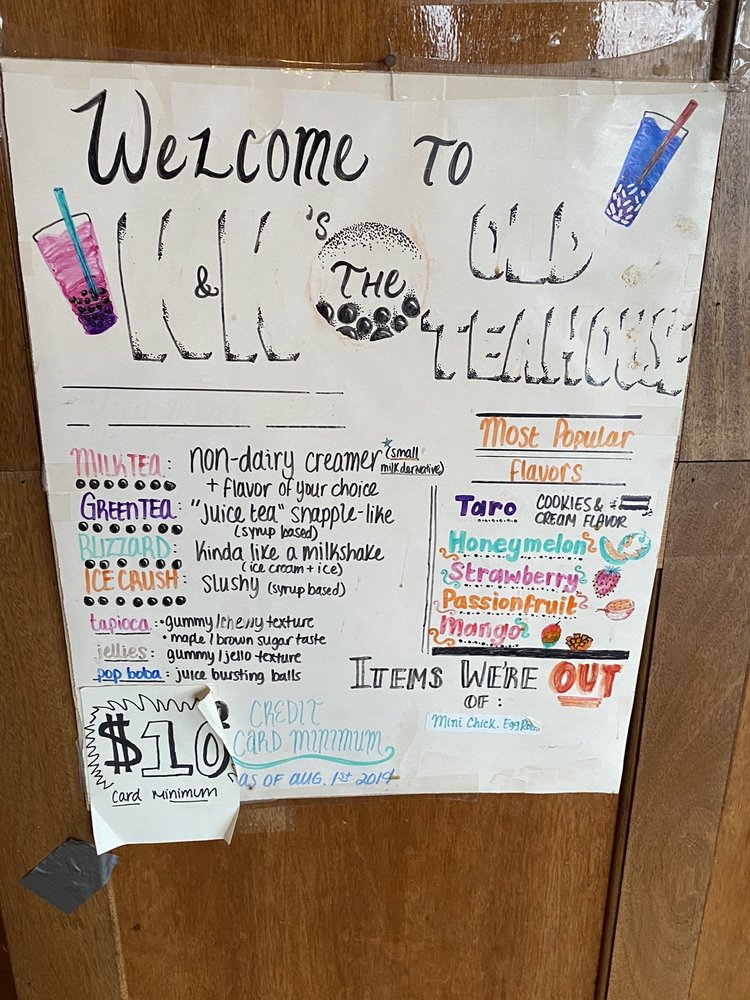 Welcome to
K & K's THE OLD
TEAHOUSE
MILK TEA: non-dairy creamer *(small
milk derivative)
+ flavor of your choice
GREEN TEA: "Juice tea" snapple-like
(syrup based)
BLIZZARD: Kinda like a milkshake
(ice cream + ice)
ICE CRUSH: Slushy (syrup based)
tapioca: • gummy/chewy texture
• maple/brown sugar taste
jellies: gummy/jello texture
pop boba: juice bursting balls
Most Popular
Flavors
Taro COOKIES &
CREAM FLAVOR
Honeymelon
Strawberry
Passionfruit
Mango
ITEMS WE'RE OUT
OF:
Mini Chick. Egg
$10
Card Minimum
CREDIT
CARD MINIMUM
AS OF AUG. 1st 2019